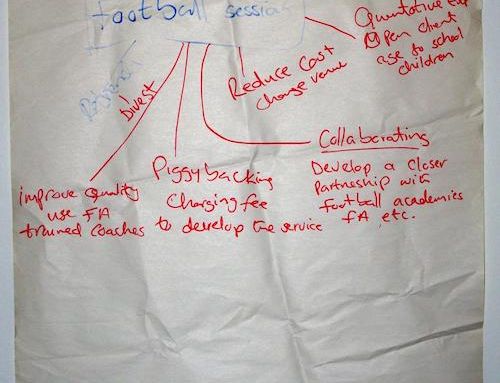 football session
Quantitative
Open client
age to school
children
Reduce Cost
change venue
Divest
Collaborating
Develop a closer
Partneship with
football academies
FA, etc.
Piggybacking
Charging fee
to develop the service
improve Quality
use FA
trained coaches